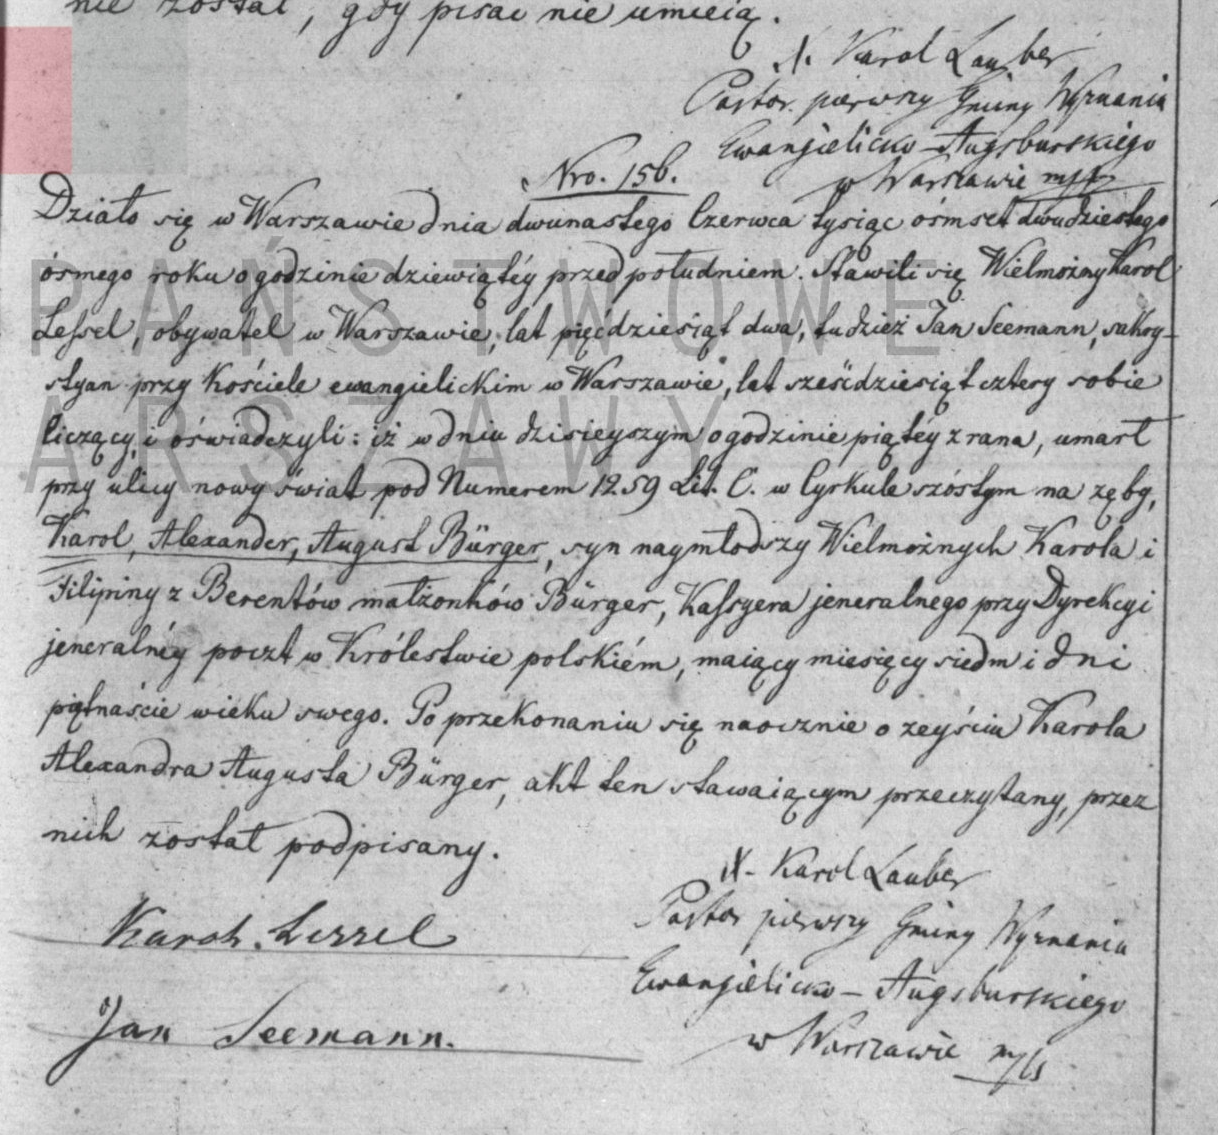 nie został, gdy pisać nie umieią.
X. Karol Lauber
Pastor pierwszy Gminy Wyznania
Ewangielicko-Augsburskiego
w Warszawie mp
Nro. 156.
Działo się w Warszawie dnia dwunastego Czerwca tysiąc ośmset dwudziestego
ósmego roku o godzinie dziewiątéy przed południem. Stawili się Wielmożny Karol
Lessel, obywatel w Warszawie, lat pięćdziesiąt dwa, tudzież Jan Seemann, zakry-
styan przy Kościele ewangielickim w Warszawie, lat sześćdziesiąt cztery sobie
liczący, i oświadczyli: iż w dniu dzisieyszym o godzinie piątéy z rana, umarł
przy ulicy nowy świat pod Numerem 1259 Lit. C. w Cyrkule szóstym na zęby,
Karol, Alexander, August Bürger, syn naymłodszy Wielmożnych Karola i
Filipiny z Berentów małżonków Bürger, Kassyera jeneralnego przy Dyrekcyi
jeneralnéy poczt w Królestwie polskiém, maiący miesięcy siedm i dni
piętnaście wieku swego. Po przekonaniu się naocznie o zeyściu Karola
Alexandra Augusta Bürger, akt ten stawaiącym przeczytany, przez
nich został podpisany.
X. Karol Lauber
Pastor pierwszy Gminy Wyznania
Ewangielicko-Augsburskiego
w Warszawie
Karol Lessel
Jan Seemann.
PAŃSTWOWE
ARSZAWY